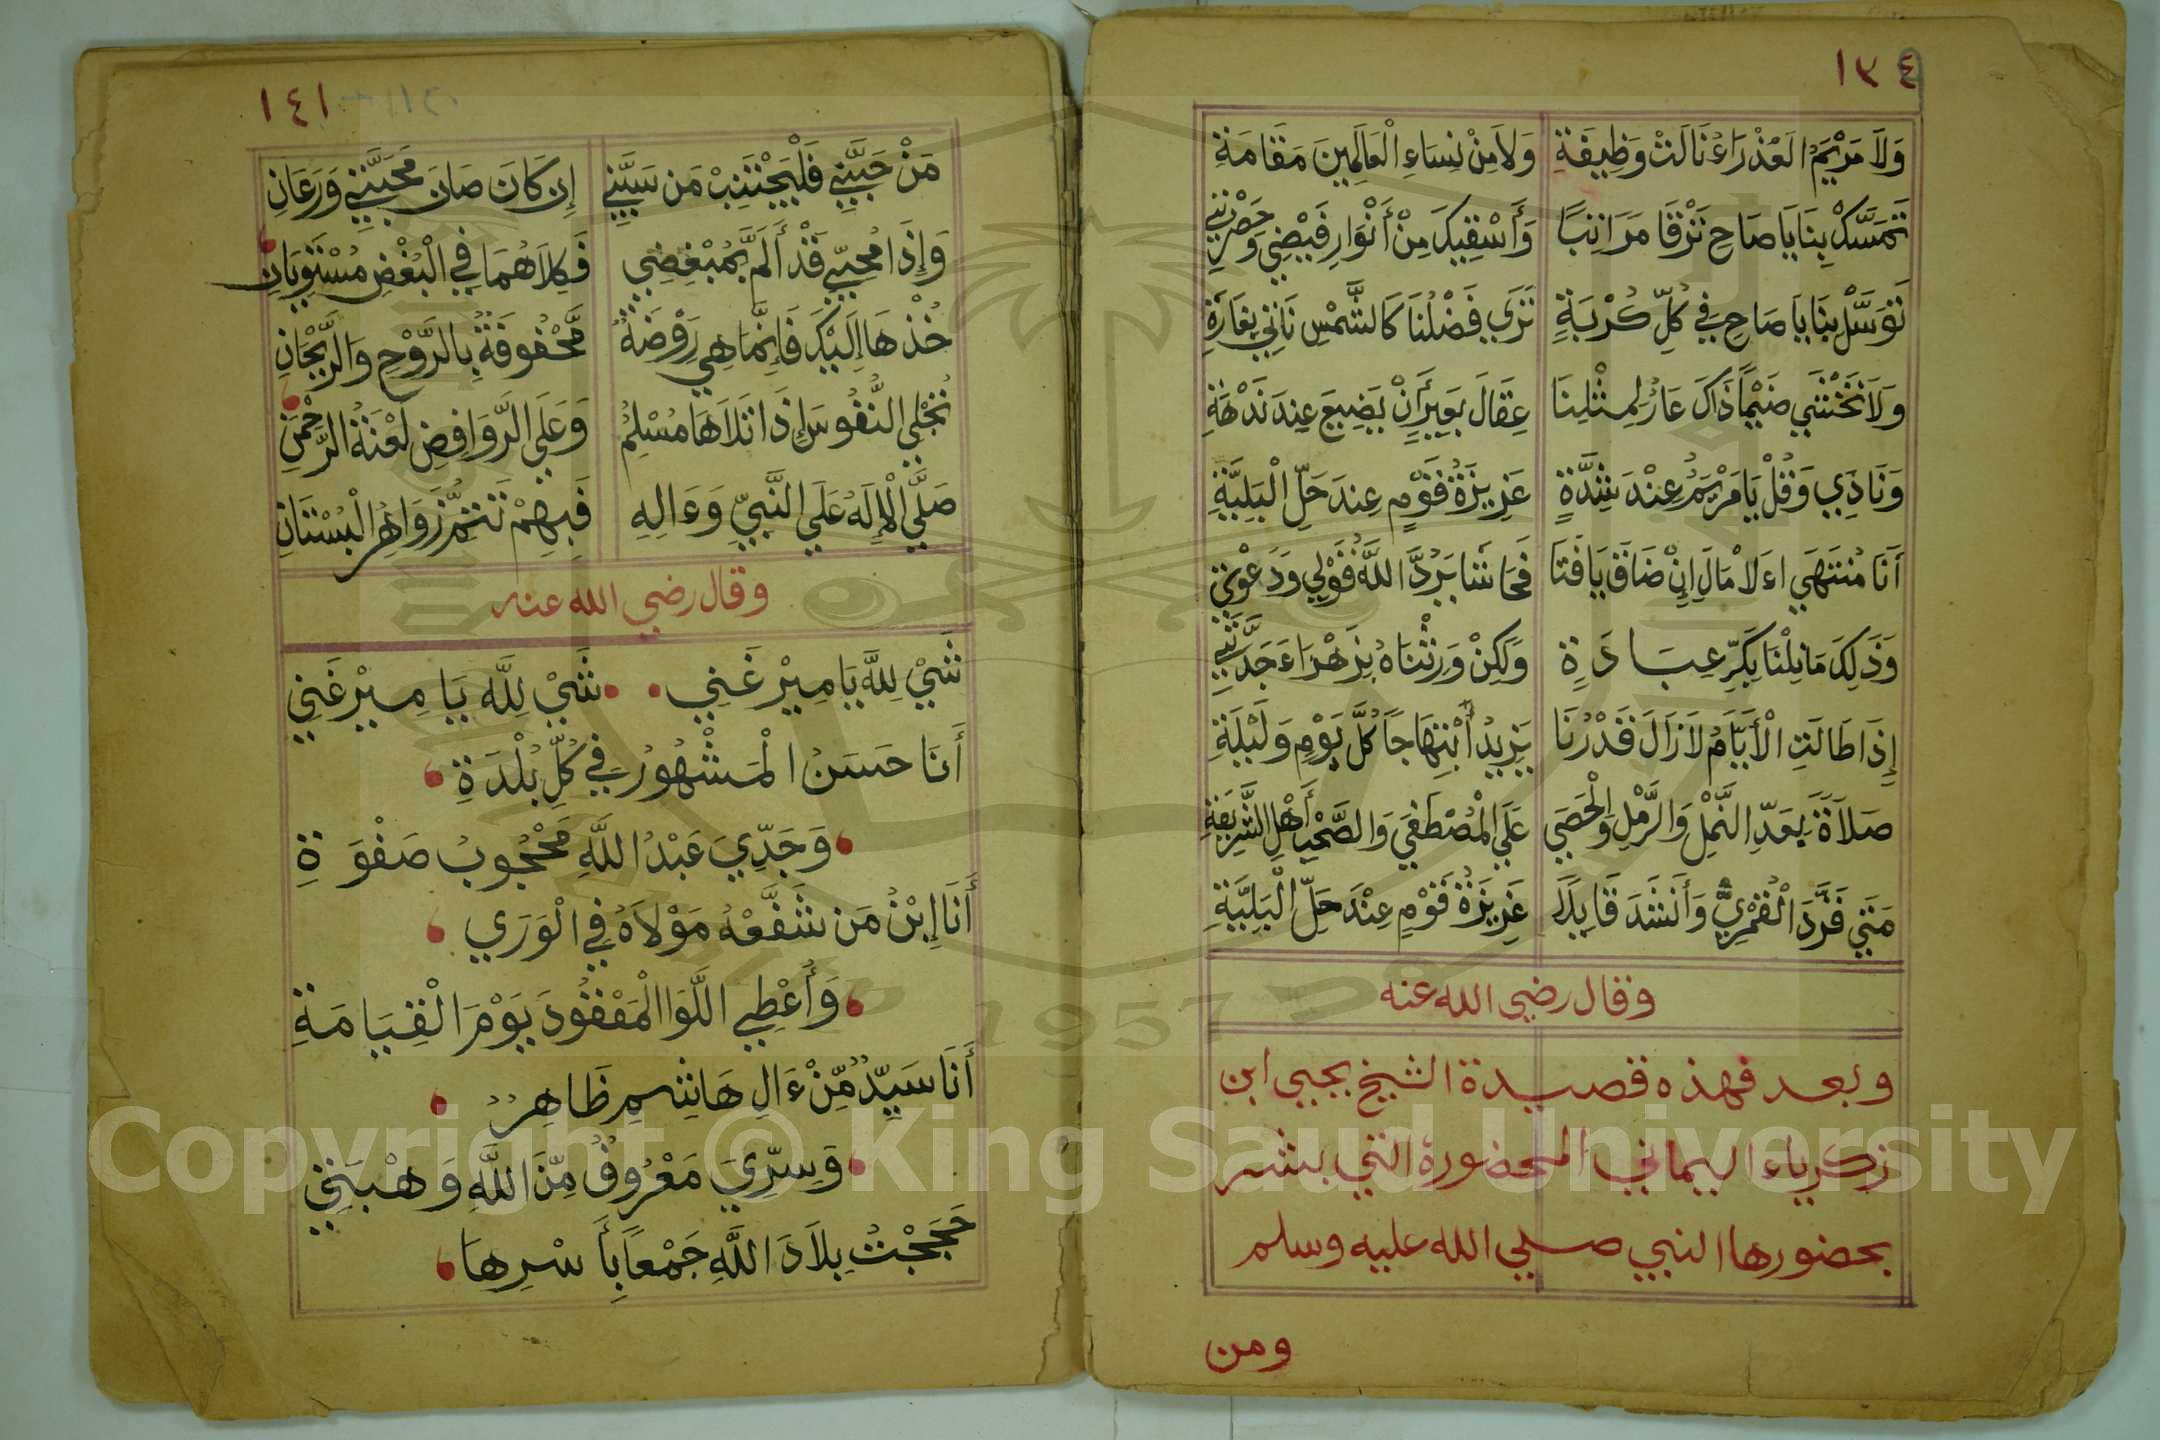 ١٣٤
وَلَا مَرْيَمُ الْعَذْرَاءُ نَالَتْ وَظِيفَةِ وَلَا مِنْ نِسَاءِ الْعَالَمِينَ مَقَامَةِ
تَمَسَّكْ بِنَا يَا صَاحِ تَرْقَا مَرَاتِبًا وَأَسْقِيكَ مِنْ أَنْوَارِ فَيْضِي وَحَضْرَتِي
تَوَسَّلْ بِنَا يَا صَاحِ فِي كُلِّ كُرْبَةٍ تَرَي فَضْلَنَا كَالشَّمْسِ تَاتِي بِغَارَةِ
وَلَا نَخْتَشِي ضَيْمًا ذَاكَ عَارٌ لِمِثْلِنَا عِقَالَ بَعِيرٍ أَنْ يَضِيعَ عِندَ نَدْهَةِ
وَنَادِي وَقُلْ يَا مَرْيَمُ عِنْدَ شِدَّةٍ عَزِيزَةُ قَوْمٍ عِندَ حَلِّ الْبَلِيَّةِ
أَنَا مُنتَهَي اءَلَامَالِ إِنْ ضَاقَ يَا فَتَا فَحَاشَا يَرُدَّ اللَّهُ قَوْلِي وَدَعْوَتِي
وَذَلِكَ مَا نِلْنَا بِكَرِّ عِبَادَةٍ وَلَكِنْ وَرِثْنَاهُ بِزَهْرَاءَ جَدَّتِي
إِذَا طَالَتِ الْأَيَّامُ لَا زَالَ قَدْرُنَا يَزِيدُ أبْتِهَاجًا كُلَّ يَوْمٍ وَلَيْلَةِ
صَلَاةٌ بِعَدِّ النَّمْلِ وَالرَّمْلِ وَالْحَصَي عَلَي الْمُصْطَفَي وَالصَّحْبِ أَهْلِ الشَّرِيعَةِ
مَتَي غَرَّدَ الْقُمْرِيُّ وَأَنشَدَ قَايِلًا عَزِيزَةُ قَوْمٍ عِنْدَ حَلِّ الْبَلِيَّةِ
وقال رضي الله عنه
وبعد فهذه قصيدة الشيخ يحيي ابن
زكرياء اليماني المحضورة التي بشر
بحضورها النبي صلي الله عليه وسلم
ومن
١٤١
مَنْ حَبَّنِي فَلْيَجْتَنِبْ مَن سَبَّنِي إِن كَانَ صَانَ مَحَبَّتِي وَرَعَانِ
وَإِذَا مُحِبِّي قَدْ أَلَمَّ بِمُبْغِضِي فَكِلَاهُمَا فِي الْبُغْضِ مُسْتَوِيَانِ
خُذْهَا إِلَيْكَ فَإِنَّمَا هِي رَوْضَةٌ مَّحْفُوفَةٌ بِالرَّوْحِ وَالرَّيْحَانِ
تُجْلِي النُّفُوسَ إِذَا تَلَاهَا مُسْلِمٌ وَعَلَي الرَّوَافِضِ لَعْنَةُ الرَّحْمَنِ
صَلَّي الْإِلَهُ عَلَي النَّبِيِّ وَءَالِهِ فَبِهِمْ تَتِمُّ زَوَاهِرُ الْبُسْتَانِ
وقال رضي الله عنه
شَيْ لِلَّه يَا مِيْرغَنِي شَيْ لِلَّه يَا مِيْرغَنِي
أَنَا حَسَنُ الْمَشْهُورُ فِي كُلِّ بُلْدَةِ
وَجَدِّيَ عَبْدُ اللَّهِ مَحْجُوبُ صَفْوَةِ
أَنَا إِبْنُ مَن شَفَّعْهُ مَوْلَاهُ فِي الْوَرَي
وَأُعْطِي اللَّوَا الْمَعْقُودَ يَوْمَ الْقِيَامَةِ
أَنَا سَيِّدٌ مِّنْ ءَالِ هَاشِمِ ظَاهِرٌ
وَسِرِّيَ مَعْرُوفٌ مِّنَ اللَّهِ وَهْبَتِي
حَجَجْتُ بِلَادَ اللَّهِ جَمْعًا بِأَسْرِهَا
Copyright © King Saud University
1957